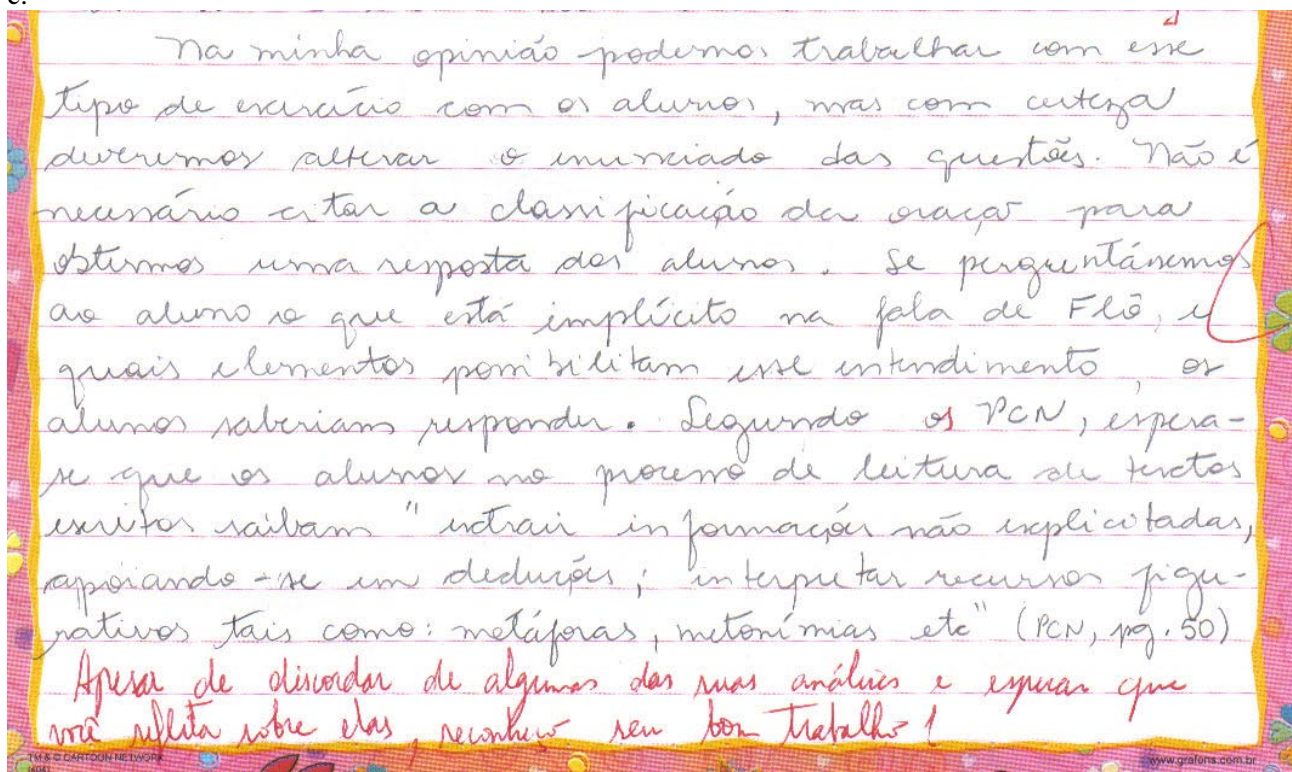 Na minha opinião podemos trabalhar com esse
tipo de exercício com os alunos, mas com certeza
deveremos alterar o enunciado das questões. Não é
necessário citar a classificação da oração para
obtermos uma resposta dos alunos. Se perguntássemos
ao aluno o que está implícito na fala de Flô, e
quais elementos possibilitam esse entendimento, os
alunos saberiam responder. Segundo os PCN, espera-
se que os alunos no processo de leitura de textos
escritos saibam "extrair informações não explicitadas,
apoiando-se em deduções; interpretar recursos figu-
rativos tais como: metáforas, metonímias etc" (PCN, pg. 50)
Apesar de discordar de algumas das suas análises e esperar que
você reflita sobre elas, reconheço seu bom trabalho!
TM & © CARTOON NETWORK
www.grafons.com.br